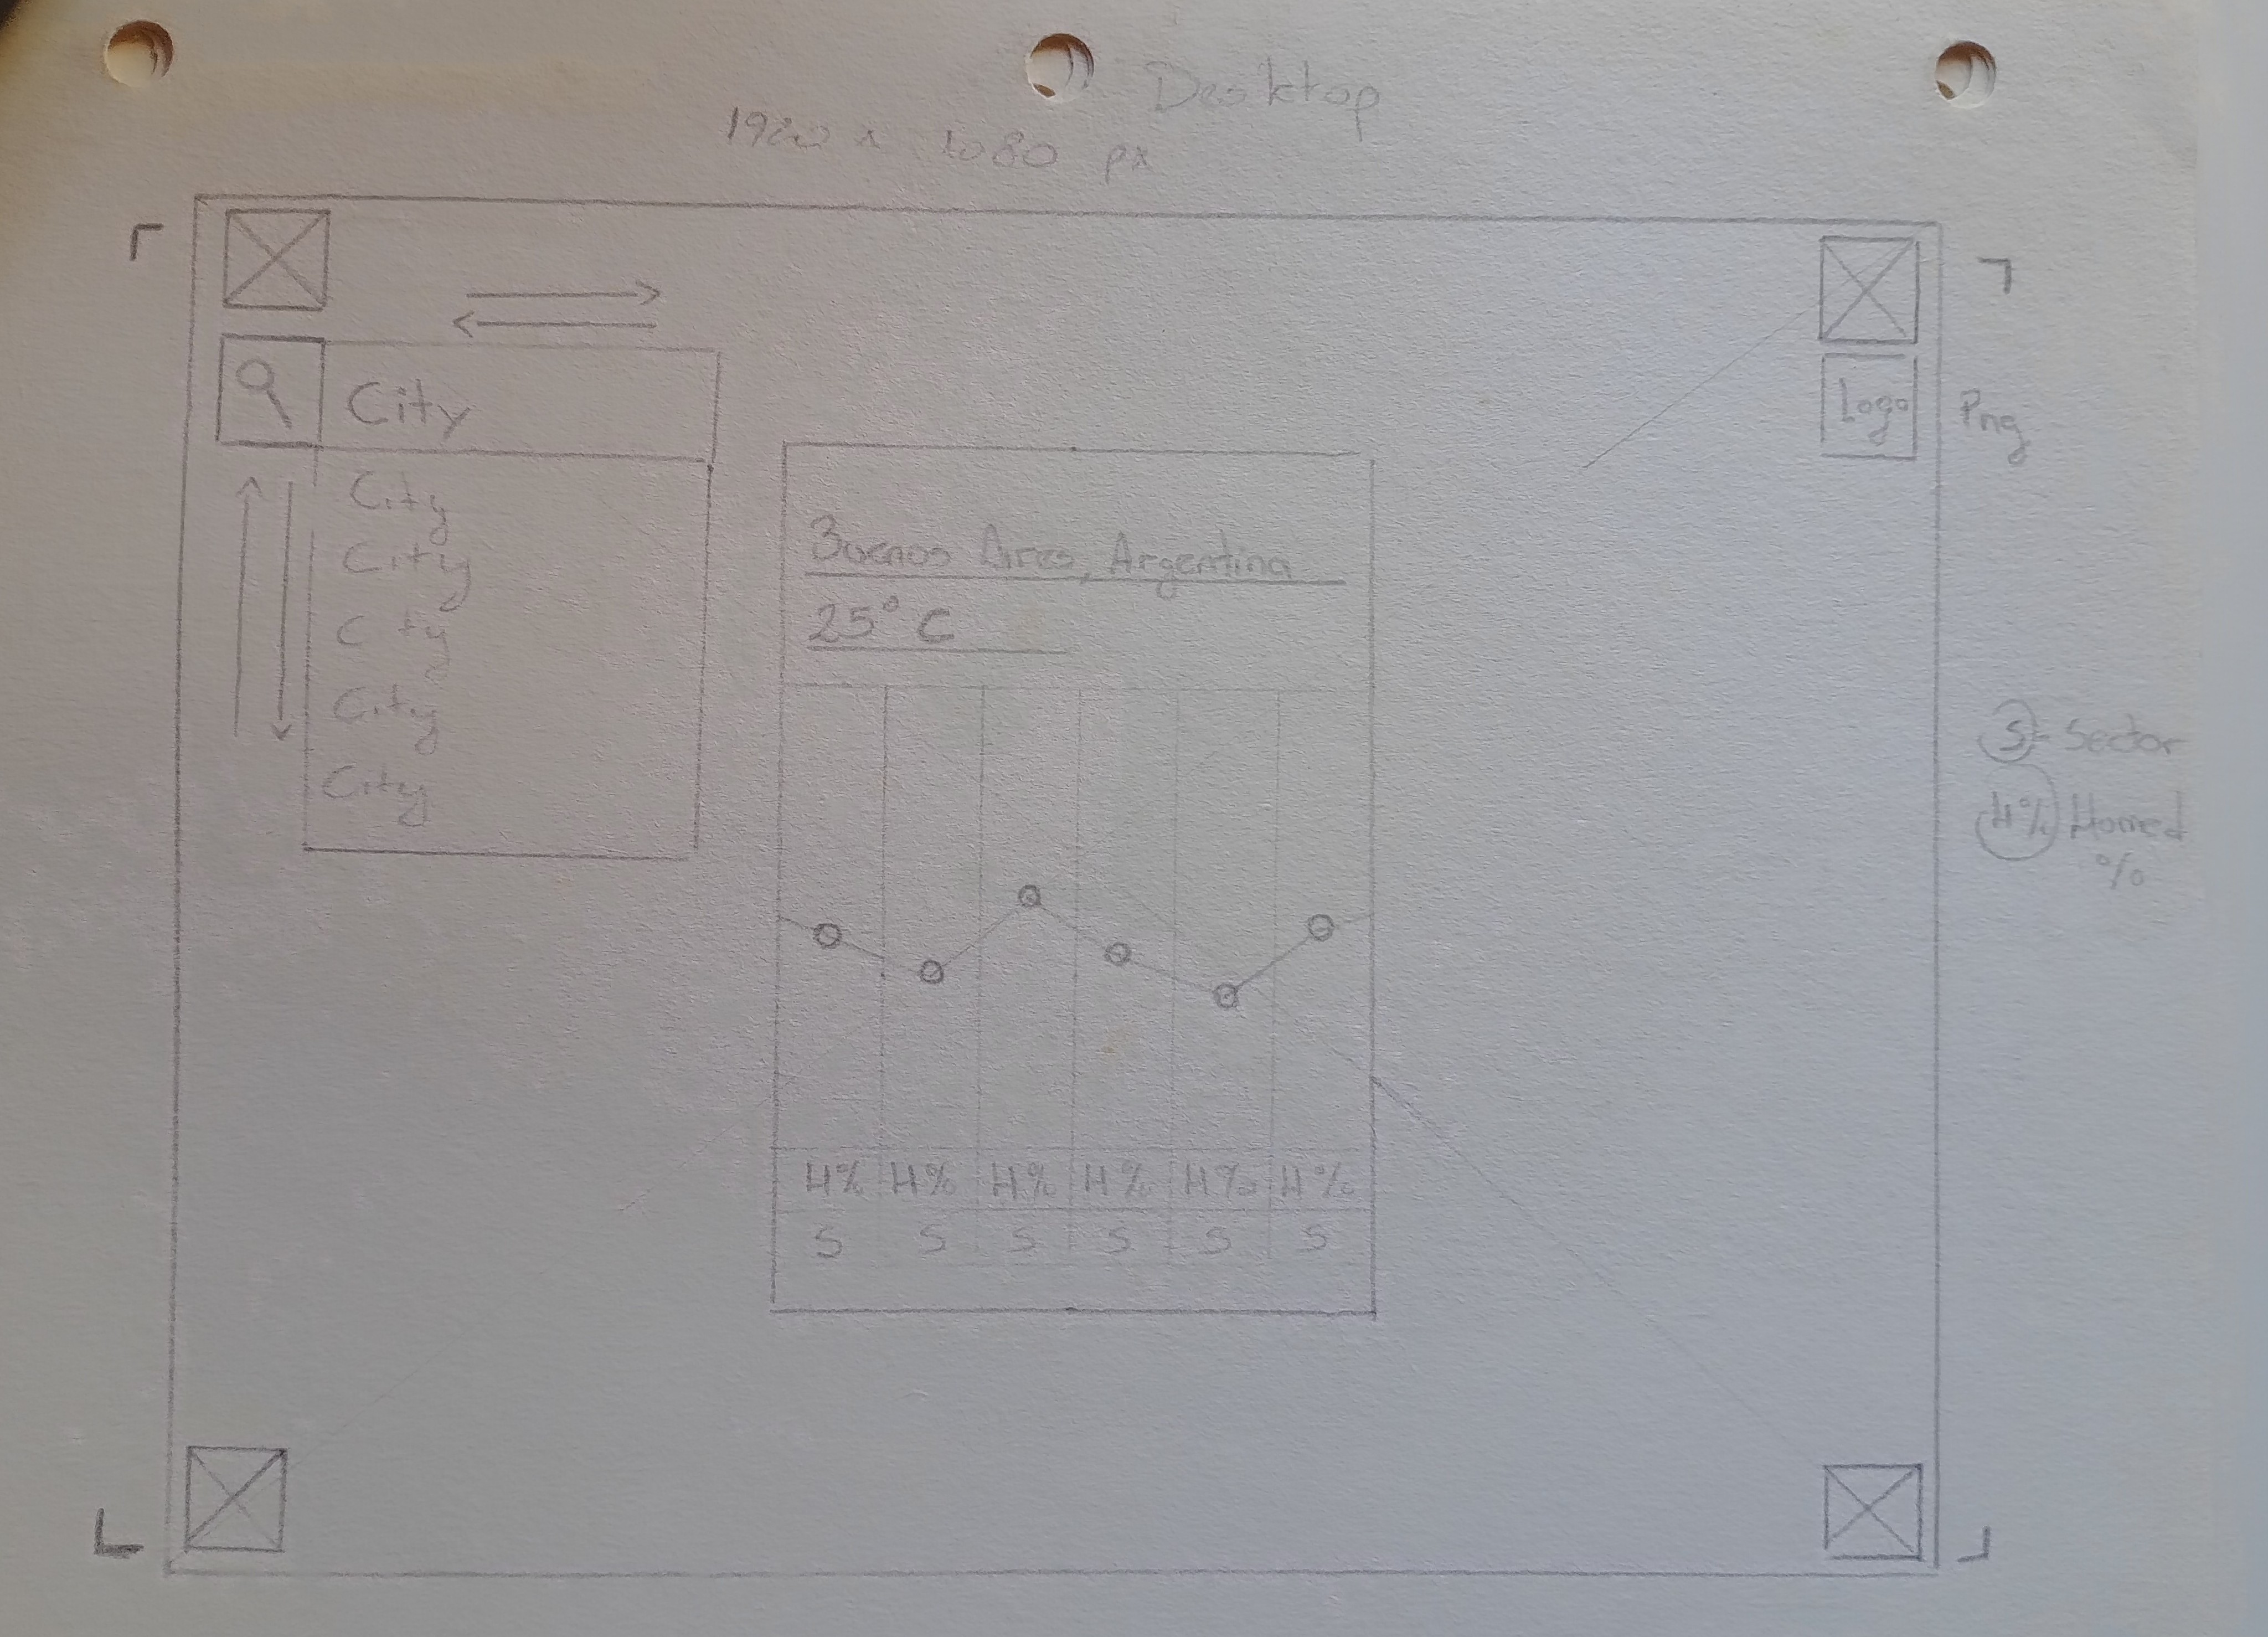 Desktop
1920 x 1080 px
City
City
City
City
City
City
Buenos Aires, Argentina
25° C
H% H% H% H% H% H%
S S S S S S
Logo
Png
S - Sector
H%
%